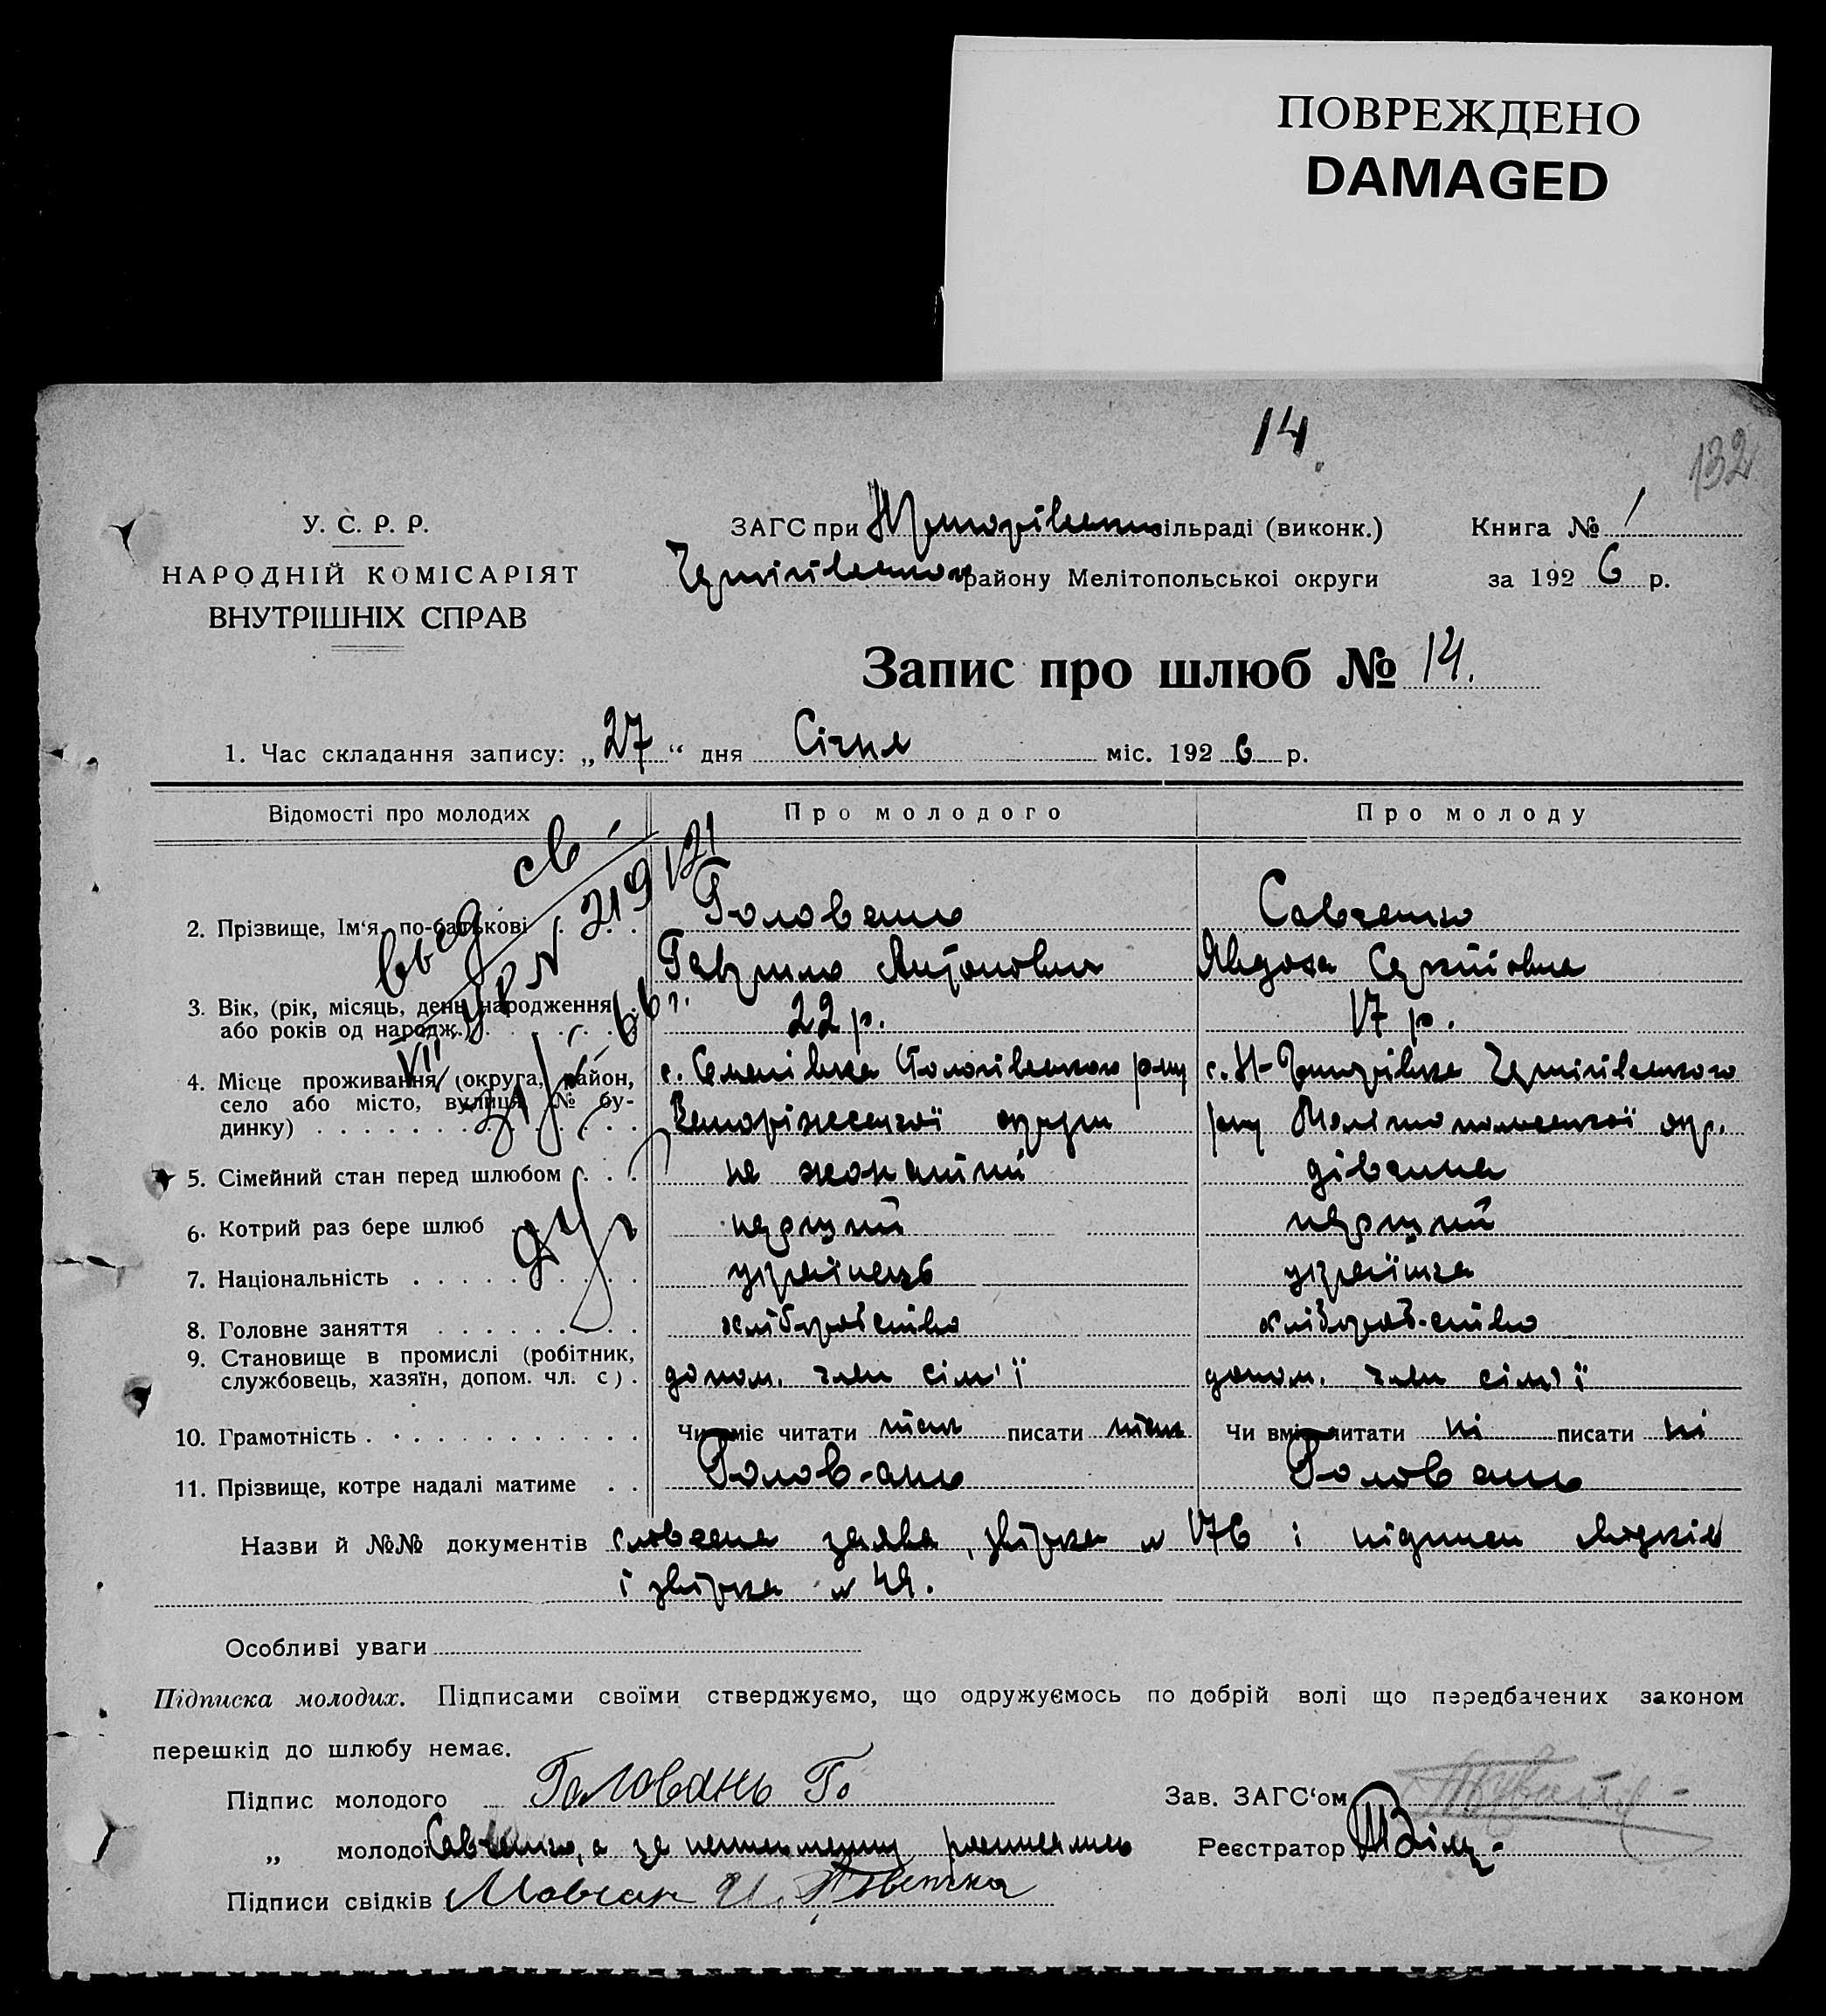 ПОВРЕЖДЕНО
DAMAGED
14.
132
У. С. Р. Р.
НАРОДНІЙ КОМІСАРІЯТ
ВНУТРІШНІХ СПРАВ
ЗАГС при сільраді (виконк.) Книга № 1
району Мелітопольської округи за 1926 р.
Запис про шлюб № 14.
1. Час складання запису: „27“ дня Січня міс. 1926 р.
Відомості про молодих Про молодого Про молоду
2. Прізвище, Ім'я, по-батькові Головань Савченко
Гаврило Антонович Явдоха Сергіївна
3. Вік, (рік, місяць, день народження 22 р. 17 р.
або років од народж.)
4. Місце проживання (округа, район, с. Семенівка с. Н-Григорівка Чернігівського
село або місто, вулиця № бу- Запоріжської округи Мелітопольської окр.
динку)
5. Сімейний стан перед шлюбом не жонатий дівчина
6. Котрий раз бере шлюб перший перший
7. Національність українець українка
8. Головне заняття хліборобство хліборобство
9. Становище в промислі (робітник, допом. член сім'ї допом. член сім'ї
службовець, хазяїн, допом. чл. с)
10. Грамотність Чи вміє читати писати Чи вміє читати ні писати ні
11. Прізвище, котре надалі матиме Головань Головань
Назви й №№ документів словесна заява, звірка № 176 і підписи свідків
і звірка № 49.
Особливі уваги
Підписка молодих. Підписами своїми стверджуємо, що одружуємось по добрій волі що передбачених законом
перешкід до шлюбу немає.
Підпис молодого Головань Го Зав. ЗАГС'ом
„ молодої Савченко, а за неписьменну Реєстратор
Підписи свідків Мовчан